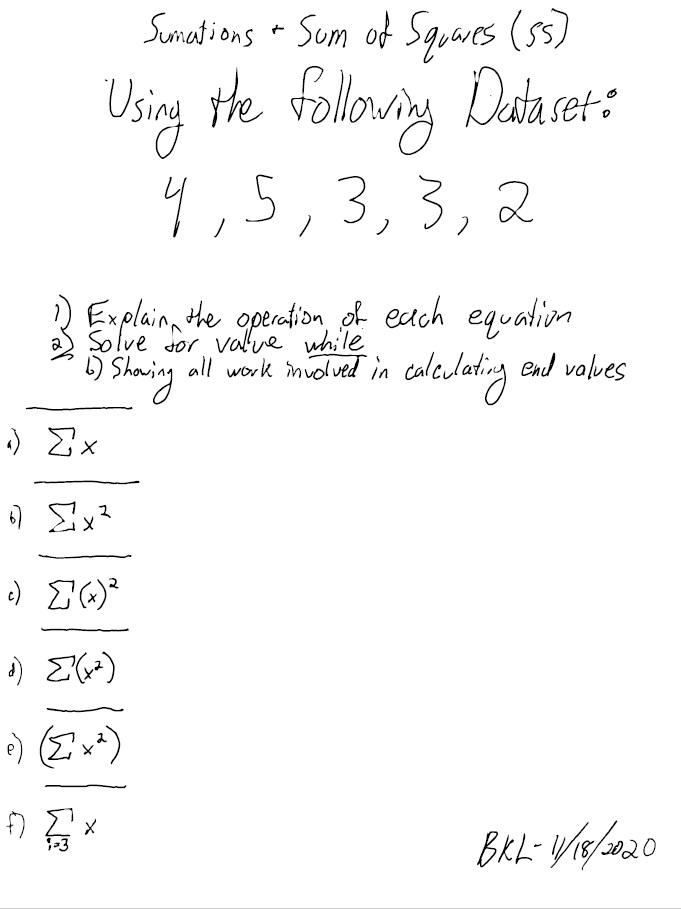 Sumations + Sum of Squares (SS)
Using the following Dataset:
4, 5, 3, 3, 2
1) Explain the operation of each equation
2) Solve for value while
b) Showing all work involved in calculating end values
a) Σx
b) Σx²
c) Σ(x)²
d) Σ(x²)
e) (Σx²)
f) Σ x
i=3
BKL- 11/18/2020